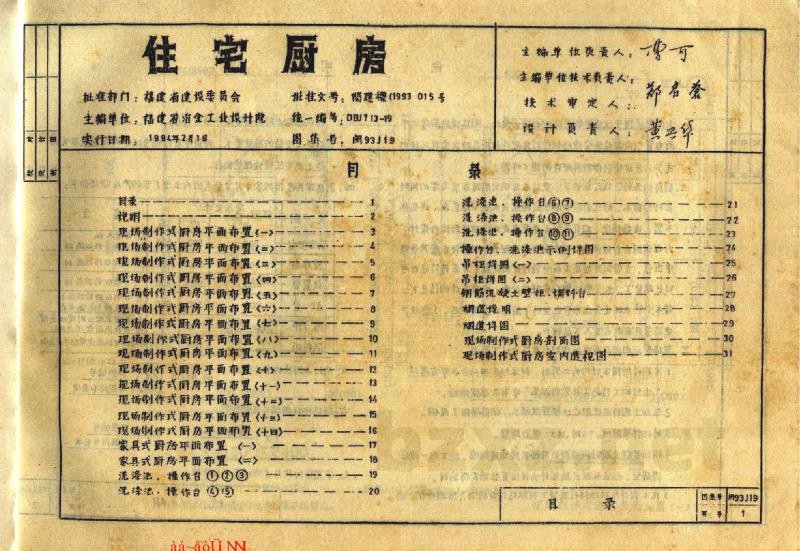 住宅厨房
批准部门：福建省建设委员会
批准文号：闽建标(1993)015号
主编单位：福建省冶金工业设计院
统一编号：DBJT13-19
实行日期：1994年2月1日
图集号：闽93J19
主编单位负责人：
主编单位技术负责人：
技术审定人：
设计负责人：
目录
目录 1
说明 2
现场制作式厨房平面布置〈一〉 3
现场制作式厨房平面布置〈二〉 4
现场制作式厨房平面布置〈三〉 5
现场制作式厨房平面布置〈四〉 6
现场制作式厨房平面布置〈五〉 7
现场制作式厨房平面布置〈六〉 8
现场制作式厨房平面布置〈七〉 9
现场制作式厨房平面布置〈八〉 10
现场制作式厨房平面布置〈九〉 11
现场制作式厨房平面布置〈十〉 12
现场制作式厨房平面布置〈十一〉 13
现场制作式厨房平面布置〈十二〉 14
现场制作式厨房平面布置〈十三〉 15
现场制作式厨房平面布置〈十四〉 16
家具式厨房平面布置〈一〉 17
家具式厨房平面布置〈二〉 18
洗涤池、操作台①②③ 19
洗涤池、操作台④⑤ 20
洗涤池、操作台⑥⑦ 21
洗涤池、操作台⑧⑨ 22
洗涤池、操作台⑩⑪ 23
操作台、洗涤池示例详图 24
吊柜详图〈一〉 25
吊柜详图〈二〉 26
钢筋混凝土壁柜、调料台 27
烟道说明 28
烟道详图 29
现场制作式厨房剖面图 30
现场制作式厨房室内透视图 31
目录
图集号 闽93J19
页号 1